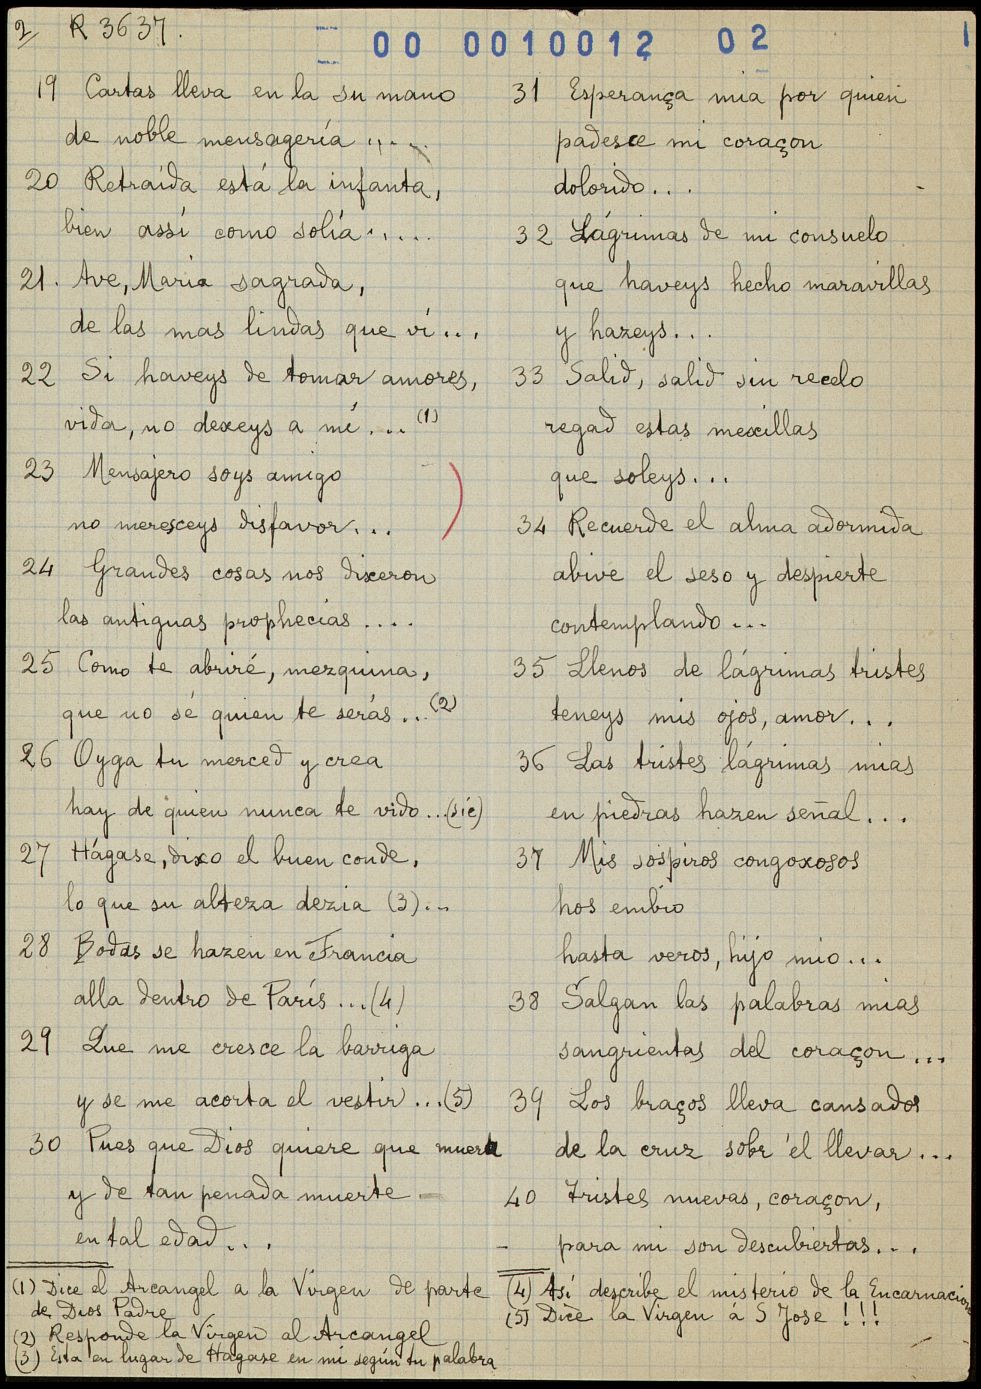 2/ R 3637.
00 0010012 02
1
19 Cartas lleva en la su mano
de noble mensagería ....
20 Retraída está la infanta,
bien assí como solía ....
21. Ave, Maria sagrada,
de las mas lindas que ví...
22 Si haveys de tomar amores,
vida, no dexeys a mí... (1)
23 Mensajero soys amigo
no meresceys disfavor...
24 Grandes cosas nos dixeron
las antiguas prophecías ....
25 Como te abriré, mezquina,
que no sé quien te serás... (2)
26 Oyga tu merced y crea
hay de quien nunca te vido...(sic)
27 Hágase, dixo el buen conde,
lo que su alteza dezia (3)...
28 Bodas se hazen en Francia
alla dentro de París...(4)
29 Que me cresce la barriga
y se me acorta el vestir...(5)
30 Pues que Dios quiere que muera
y de tan penada muerte
en tal edad...
31 Esperança mia por quien
padesce mi coraçon
dolorido...
32 Lágrimas de mi consuelo
que haveys hecho maravillas
y hazeys...
33 Salid, salid sin recelo
regad estas mexillas
que soleys...
34 Recuerde el alma adormida
abive el seso y despierte
contemplando...
35 Llenos de lágrimas tristes
teneys mis ojos, amor...
36 Las tristes lágrimas mias
en piedras hazen señal...
37 Mis sospiros congoxosos
hos embío
hasta veros, hijo mio...
38 Salgan las palabras mias
sangrientas del coraçon...
39 Los braços lleva cansados
de la cruz sobr'él llevar...
40 Tristes nuevas, coraçon,
para mi son descubiertas...
(1) Dice el Arcangel a la Virgen de parte
de Dios Padre
(2) Responde la Virgen al Arcangel
(3) Esta en lugar de Hágase en mi según tu palabra
(4) Así describe el misterio de la Encarnacion
(5) Dice la Virgen á S Jose !!!